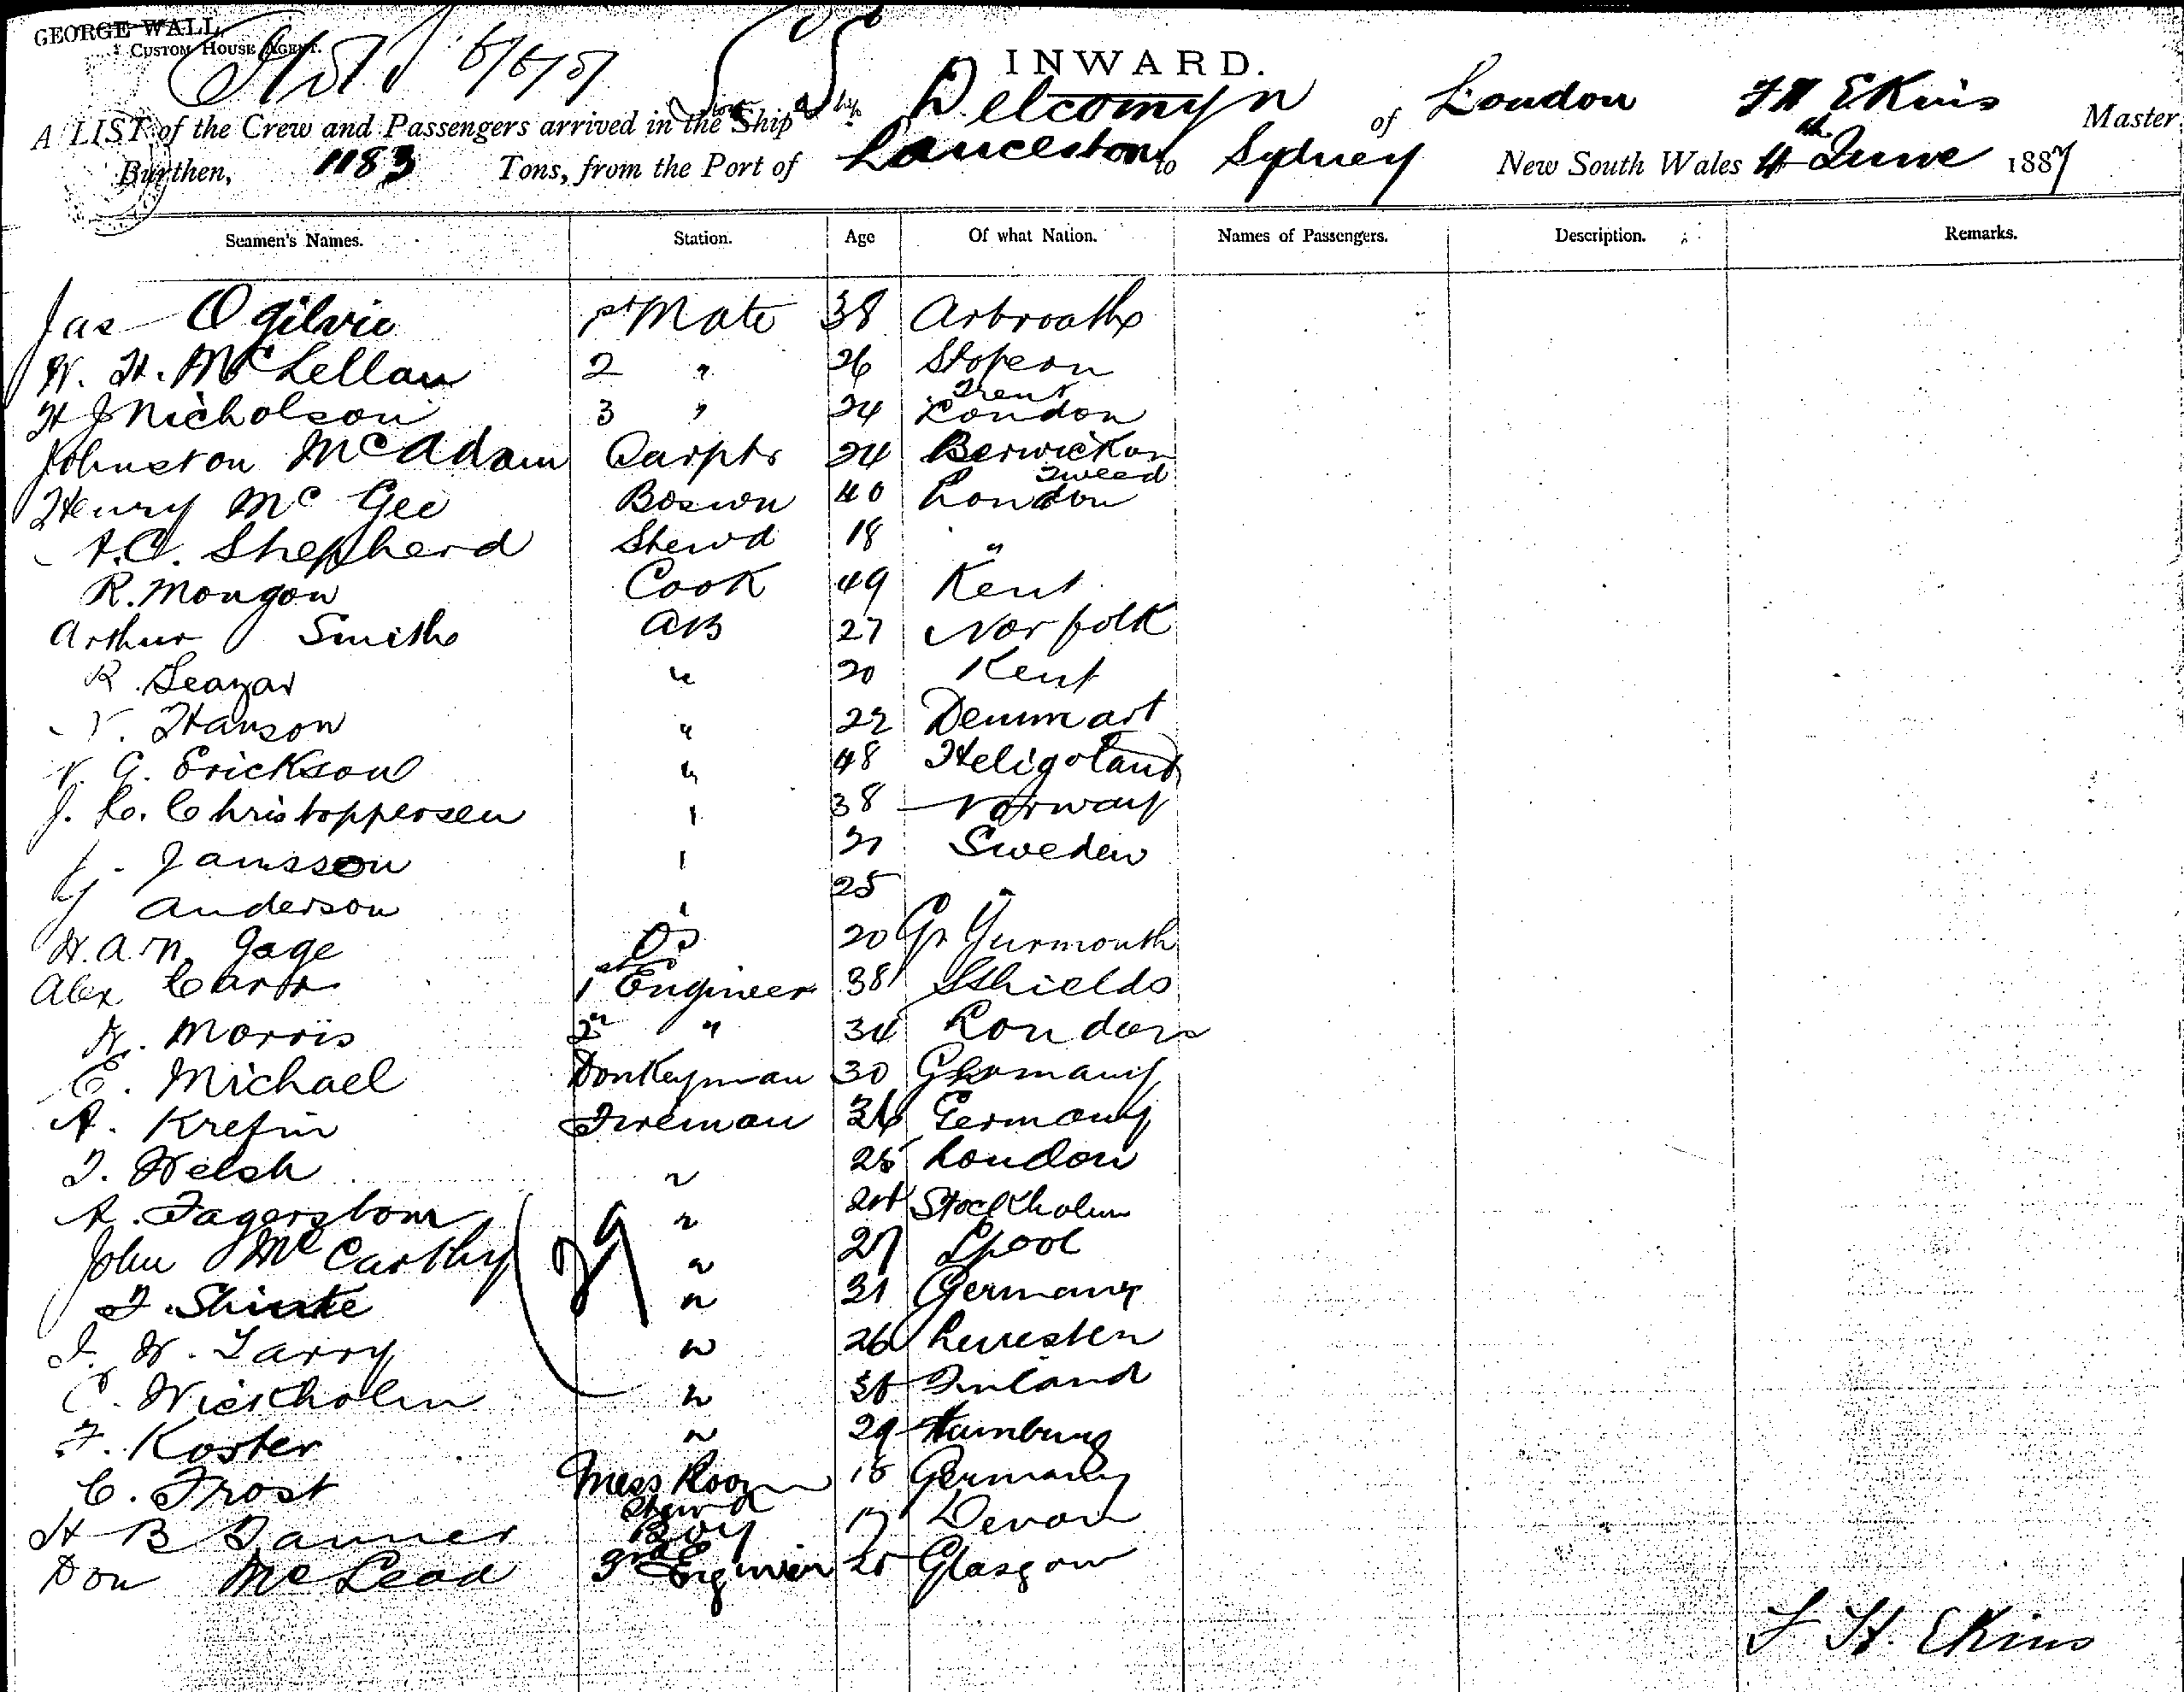 GEORGE WALL,
CUSTOM HOUSE AGENT.
INWARD.
A LIST of the Crew and Passengers arrived in the Ship Delcomyn of London F H Ekins Master
Burthen, 1183 Tons, from the Port of Launceston to Sydney New South Wales 4th June 1887
Seamen's Names. Station. Age Of what Nation. Names of Passengers. Description. Remarks.
Jas Ogilvie 1st Mate 38 Arbroath
W. H. McLellan 2 " 26 Stoke on Trent
H J Nicholson 3 " 24 London
Johnston McAdam Carptr 24 Berwick on Tweed
Henry McGee Boswn 40 London
A.C. Shepherd Stewd 18 "
R. Mongon Cook 49 Kent
Arthur Smith AB 27 Norfolk
R. Seazar " 20 Kent
Hanson " 22 Denmark
G. Erickson " 48 Heligoland
J. C. Christoppersen " 38 Norway
J. Jansson " 21 Sweden
Anderson " 25 "
H. A. N. Gage OS 20 Gt Yurmouth
Alex Carr 1st Engineer 38 Shields
Morris 2n " 34 London
E. Michael Donkeyman 30 Germany
A. Krefin Fireman 26 Germany
T. Welsh " 25 London
A. Fagerstom " Stockholm
John McCarthy " 27 Lpool
F. Shinke " 31 Germany
W. Tarry " 26
C. Wickholm " Finland
F. Koster " 29 Hamburg
C. Frost Mess Room Stewd 18 Germany
H B Tanner Boy 17 Devon
Don McLead 3rd Engineer Glasgow
F H. Ekins